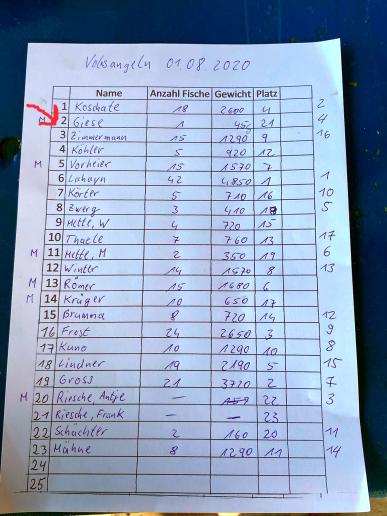 Volksangeln 01.08.2020
Name Anzahl Fische Gewicht Platz
1 Koschate 18 2600 4 2
M 2 Giese 1 45 21 4
3 Zimmermann 15 1290 9 16
4 Köhler 5 920 12
M 5 Vorheier 15 1570 7
6 Lahayn 42 4850 1 1
7 Körter 5 710 16 10
8 Zwerg 3 410 18 5
9 Mette, W 4 720 15
10 Thaele 7 760 13 17
M 11 Mette, M 2 350 19 6
12 Winter 14 1570 8 13
M 13 Römer 15 1680 6
M 14 Krüger 10 650 17
15 Bramma 8 720 14 12
16 Frost 24 2650 3 9
17 Kuno 10 1290 10 8
18 Lindner 19 2190 5 15
19 Gross 21 3720 2 7
M 20 Riesche, Antje — 22 3
21 Riesche, Frank — — 23
22 Schächter 2 160 20 11
23 Mähne 8 1290 11 14
24
25